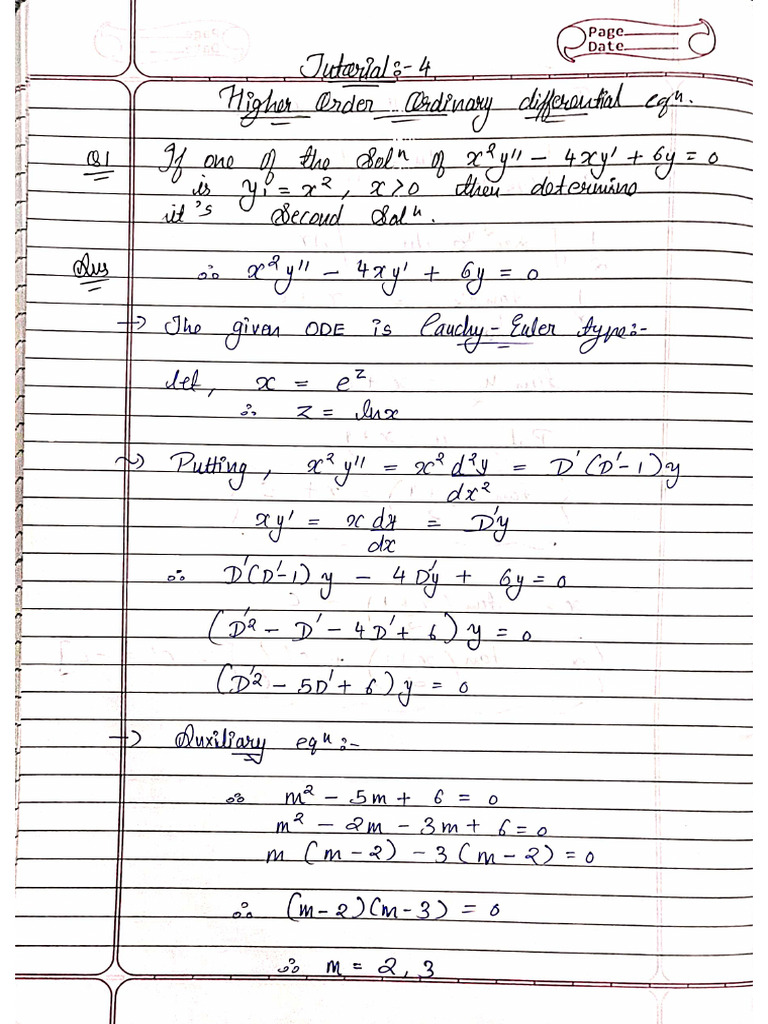 Page
Date
Tutorial:- 4
Higher Order Ordinary differential eqⁿ.
Q1 If one of the Solⁿ of x²y'' - 4xy' + 6y = 0
is y₁ = x², x>0 then determine
it's Second Solⁿ.
Ans ∴ x²y'' - 4xy' + 6y = 0
→ The given ODE is Cauchy-Euler type:-
let, x = e^z
∴ z = lnx
~> Putting, x²y'' = x² d²y/dx² = D'(D'-1)y
xy' = x dy/dx = D'y
∴ D'(D'-1)y - 4D'y + 6y = 0
(D'² - D' - 4D' + 6)y = 0
(D'² - 5D' + 6)y = 0
→ Auxiliary eqⁿ:-
∴ m² - 5m + 6 = 0
m² - 2m - 3m + 6 = 0
m (m-2) - 3(m-2) = 0
∴ (m-2)(m-3) = 0
∴ m = 2, 3